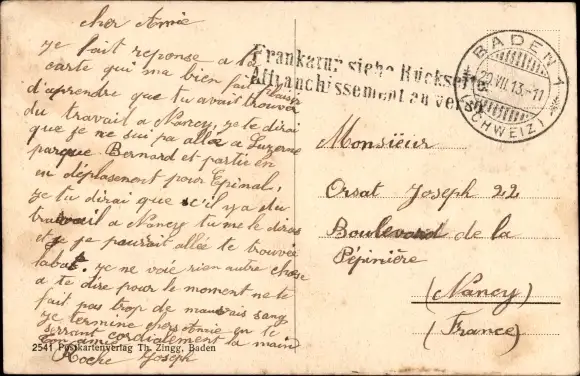 cher Amie
je fait reponse a ta
carte qui ma bien fait plaisir
d'aprendre que tu avait trouver
du travail a Nancy, je te dirai
que je ne sui pa allée a Luzerne
parque Bernard et partie en
en déplasement pour Epinal,
je tu dirai que s'il y a du
travail a Nancy tu me le diras
et je pourait allée te trouvée
labat. je ne voie rien autre chose
a te dire pour le moment ne te
fait pas trop de mauvais sang
je termine chers Amie en te
serrant cordialement la main
ton amie
Roche Joseph
2541 Postkartenverlag Th. Zingg, Baden
Frankatur siehe Rückseite
Affranchissement au verso
BADEN 1
29.VII.13.-11
(SCHWEIZ)
Monsieur
Orsat Joseph 22
Boulevard de la
Pépinière
(Nancy)
(France)